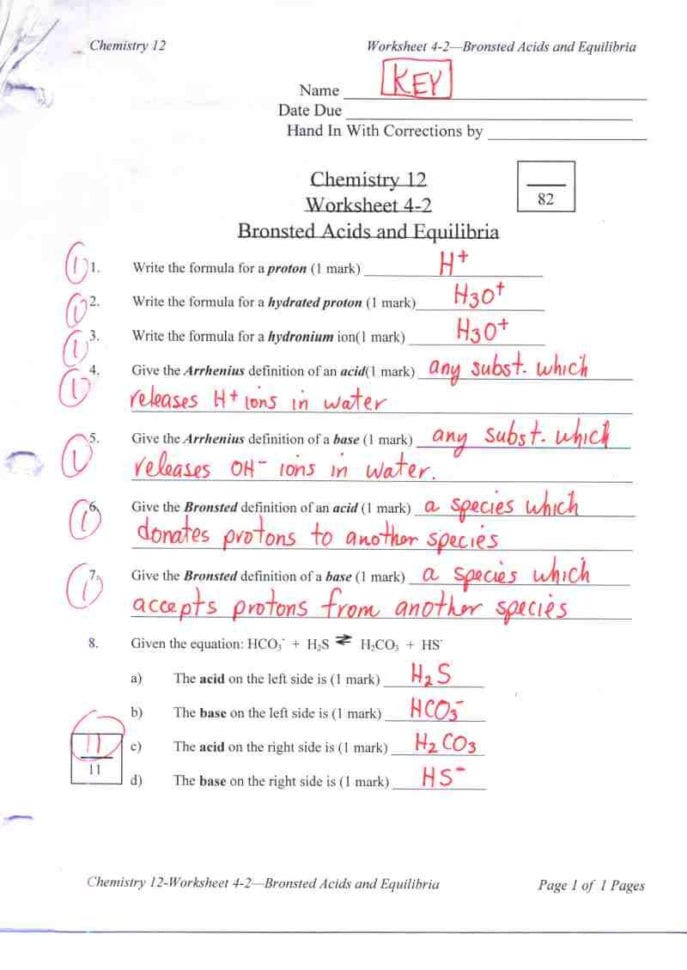 Chemistry 12 Worksheet 4-2—Bronsted Acids and Equilibria
Name KEY
Date Due
Hand In With Corrections by
Chemistry 12
82
Worksheet 4-2
Bronsted Acids and Equilibria
① 1. Write the formula for a proton (1 mark) H⁺
① 2. Write the formula for a hydrated proton (1 mark) H₃O⁺
① 3. Write the formula for a hydronium ion(1 mark) H₃O⁺
① 4. Give the Arrhenius definition of an acid(1 mark) any subst. which
releases H⁺ ions in water
① 5. Give the Arrhenius definition of a base (1 mark) any subst. which
releases OH⁻ ions in water.
① 6. Give the Bronsted definition of an acid (1 mark) a species which
donates protons to another species
① 7. Give the Bronsted definition of a base (1 mark) a species which
accepts protons from another species
8. Given the equation: HCO₃⁻ + H₂S ⇌ H₂CO₃ + HS⁻
a) The acid on the left side is (1 mark) H₂S
b) The base on the left side is (1 mark) HCO₃⁻
11 c) The acid on the right side is (1 mark) H₂CO₃
11 d) The base on the right side is (1 mark) HS⁻
Chemistry 12-Worksheet 4-2—Bronsted Acids and Equilibria Page 1 of 1 Pages